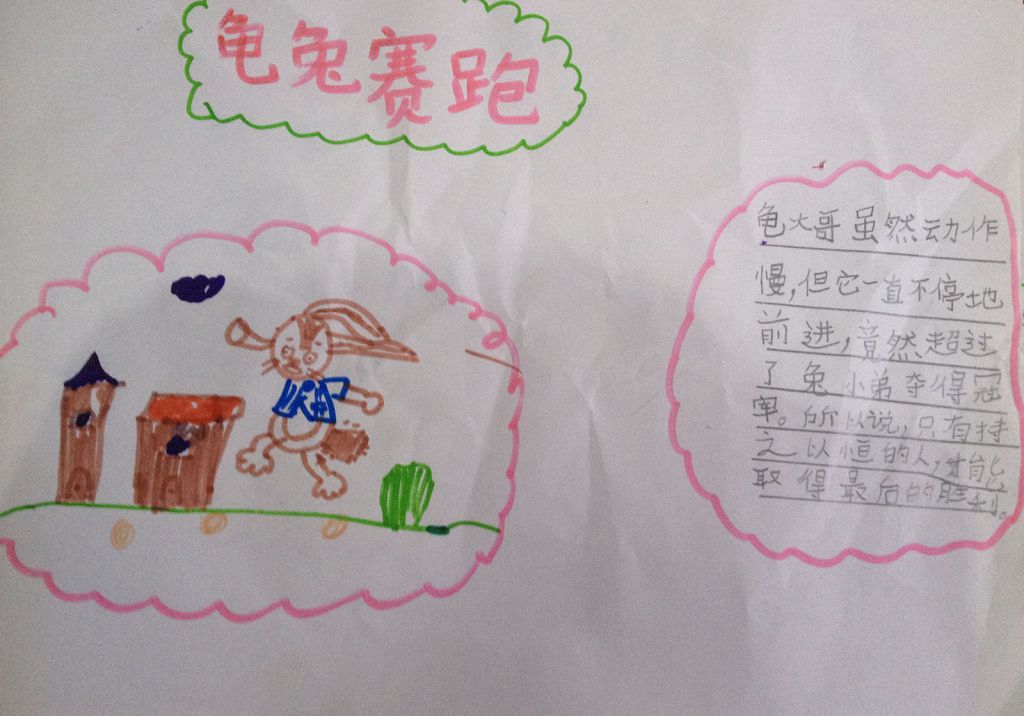 龟兔赛跑
龟大哥虽然动作
慢,但它一直不停地
前进,竟然超过
了兔小弟夺得冠
军。所以说,只有持
之以恒的人,才能
取得最后的胜利。